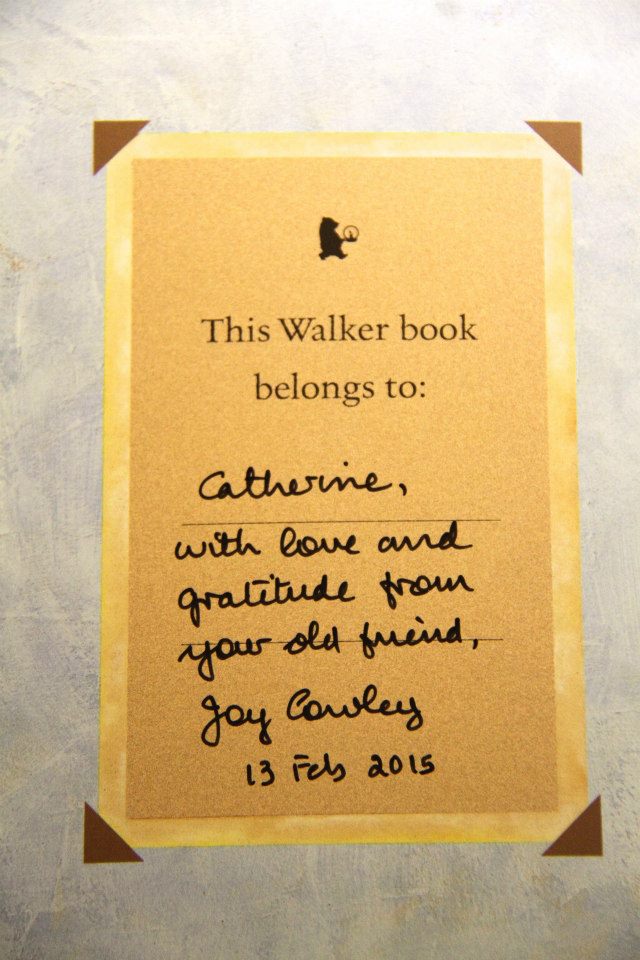 This Walker book
belongs to:
Catherine,
with love and
gratitude from
your old friend,
Joy Cowley
13 Feb 2015